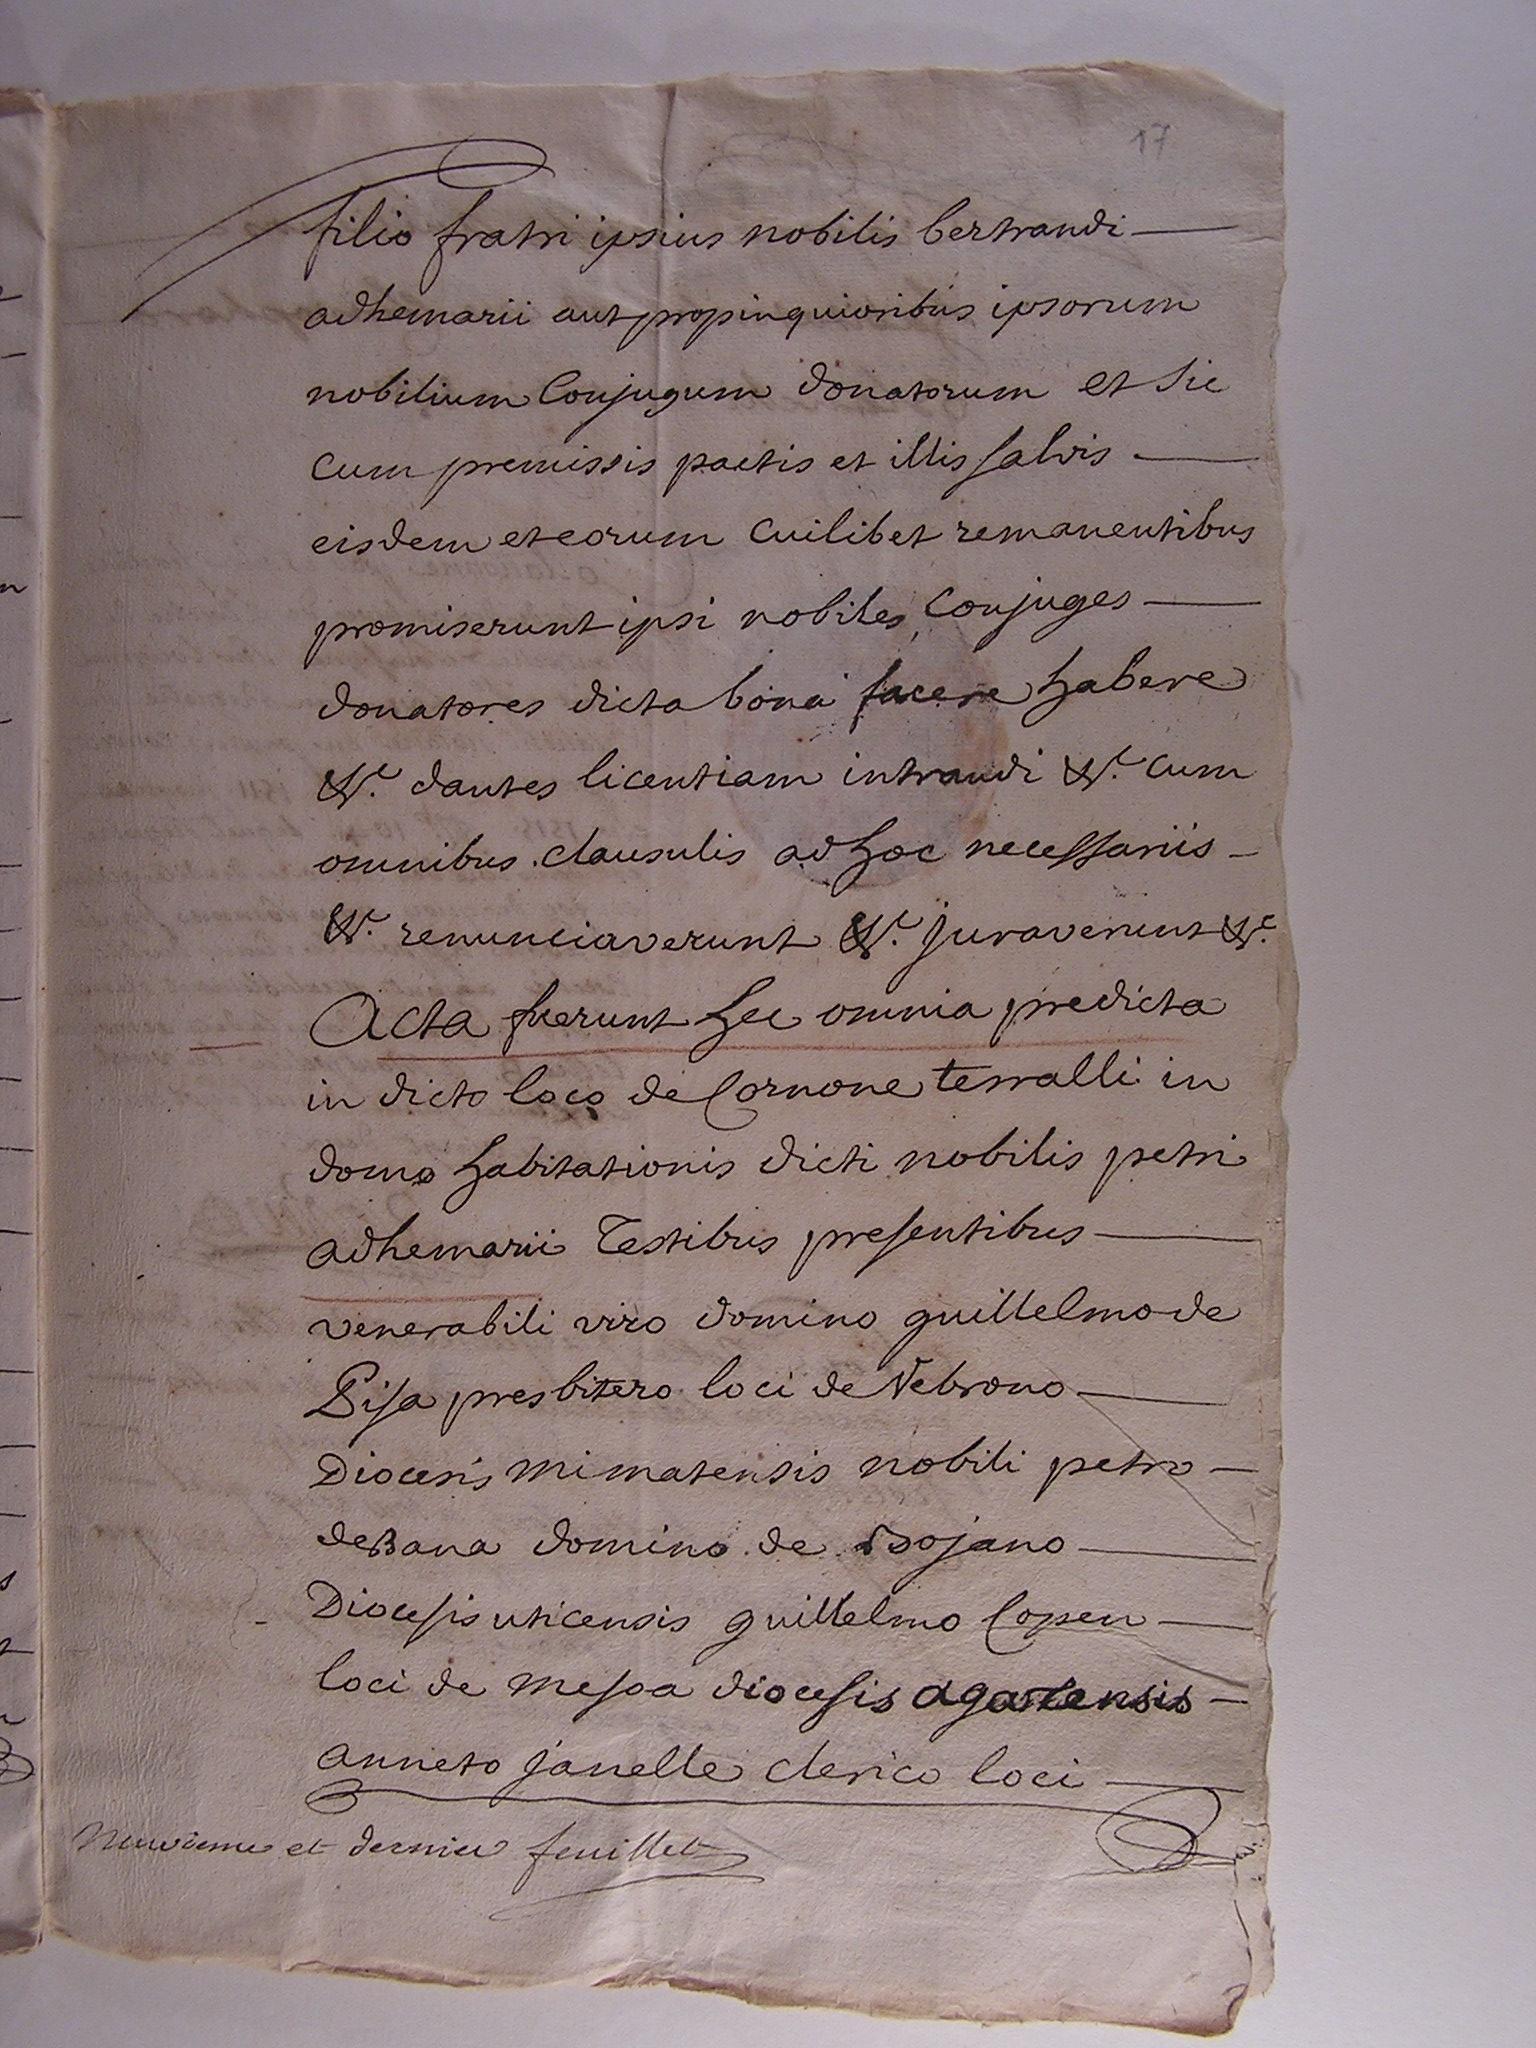 17
filio fratri ipsius nobilis bertrandi
adhemarii aut propinquioribus ipsorum
nobilium Conjugum donatorum et sic
cum premissis pactis et illis salvis
eisdem et eorum cuilibet remanentibus
promiserunt ipsi nobiles conjuges
donatores dicta bona facere habere
&c. dantes licentiam intrandi &c. cum
omnibus clausulis ad hoc necessariis
&c. renunciaverunt &c. juraverunt &c.
Acta fuerunt hec omnia predicta
in dicto loco de Cornone terralli in
domo habitationis dicti nobilis petri
adhemarii Testibus presentibus
venerabili viro domino guillelmo de
Pisa presbitero loci de Nebrono
Diocesis mimatensis nobili petro
de Bana domino de Bojano
Diocesis uticensis guillelmo Copen
loci de mesoa diocesis agatensis
anneto janelle clerico loci
Neuvieme et dernier feuillet